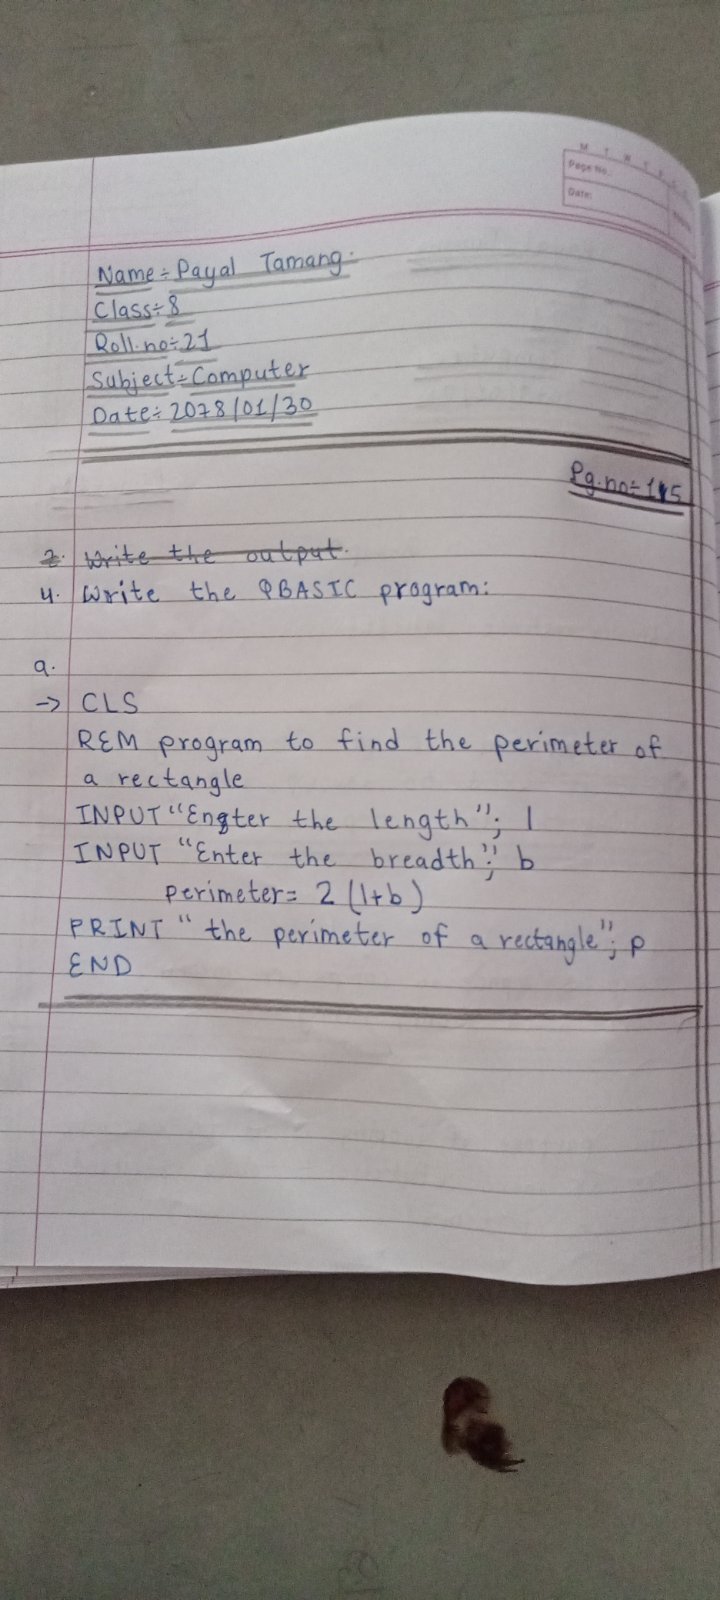 M T W T F
Page No.
Date:
Name÷Payal Tamang.
Class÷8
Roll.no÷21
Subject÷Computer
Date÷2078/01/30
Pg.no÷115
2. Write the output.
4. Write the QBASIC program:
a.
-> CLS
REM program to find the perimeter of
a rectangle
INPUT "Engter the length"; l
INPUT "Enter the breadth"; b
perimeter= 2(l+b)
PRINT " the perimeter of a rectangle"; p
END